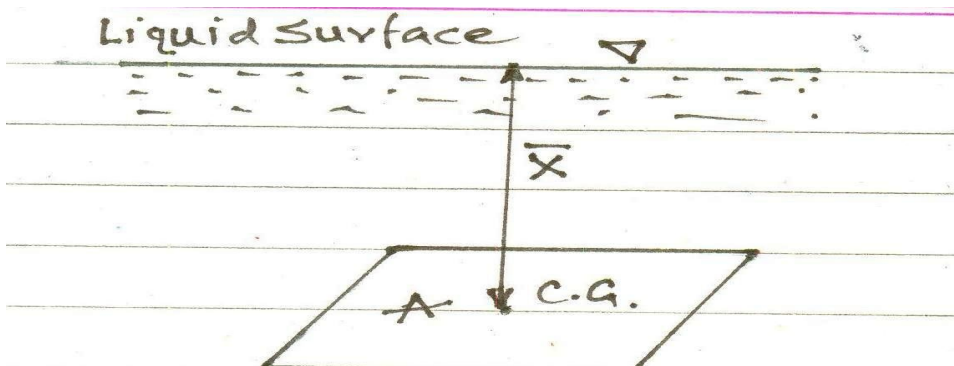 Liquid Surface
X̅
A C.G.